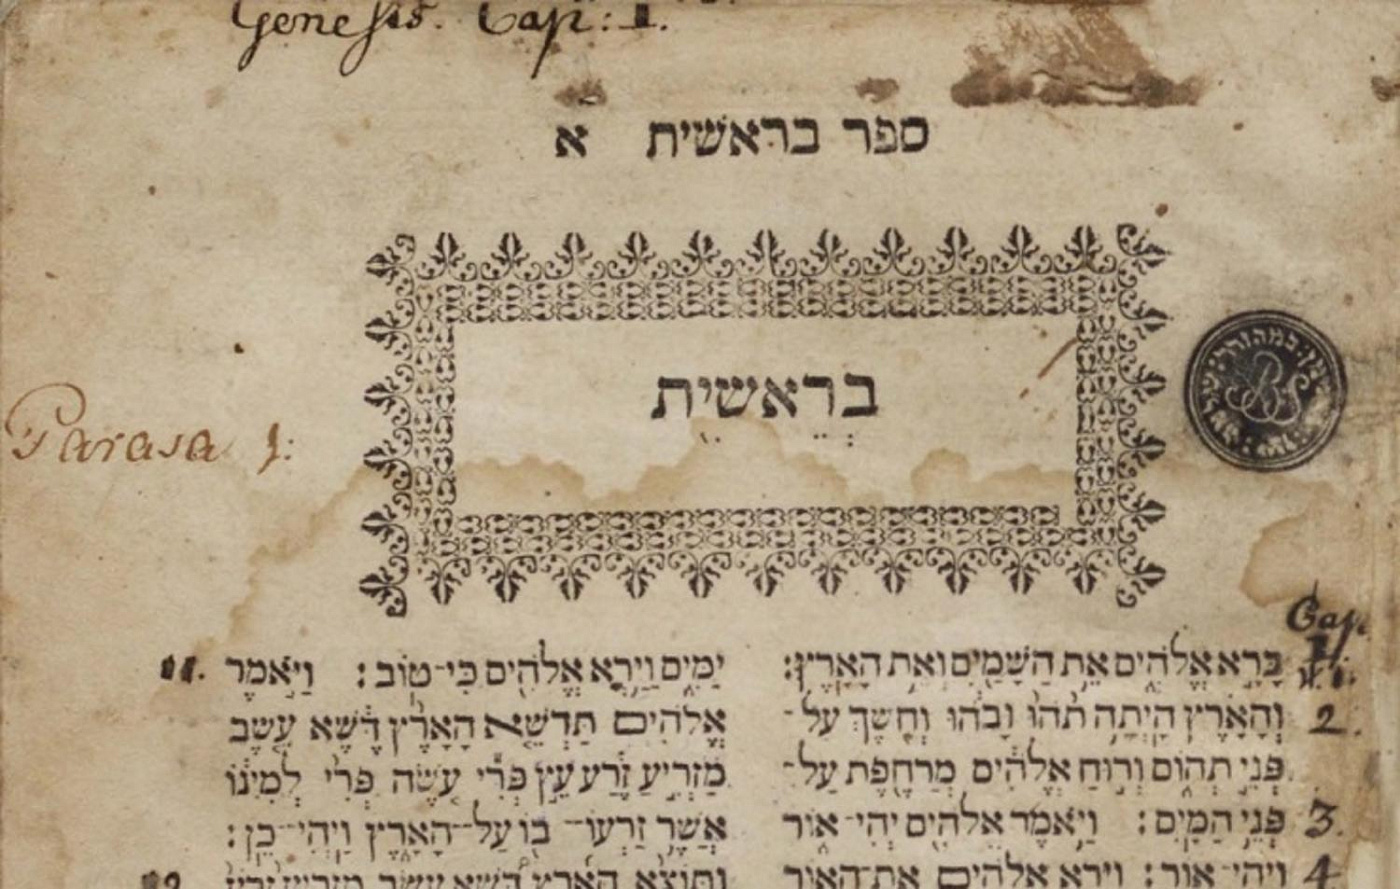 Genesis. Cap: 1.
ספר בראשית א
בְּרֵאשִׁית
Parasa 1:
Cap.
בָּרָא אֱלֹהִים אֵת הַשָּׁמַיִם וְאֵת הָאָרֶץ:
2. וְהָאָרֶץ הָיְתָה תֹהוּ וָבֹהוּ וְחֹשֶׁךְ עַל־
פְּנֵי תְהוֹם וְרוּחַ אֱלֹהִים מְרַחֶפֶת עַל־
3. פְּנֵי הַמָּיִם: וַיֹּאמֶר אֱלֹהִים יְהִי־אוֹר
4 ויהי־אור: וירא אלהים את־האור
11. יַמִּים וַיַּרְא אֱלֹהִים כִּי־טוֹב: וַיֹּאמֶר
אֱלֹהִים תַּדְשֵׁא הָאָרֶץ דֶּשֶׁא עֵשֶׂב
מַזְרִיעַ זֶרַע עֵץ פְּרִי עֹשֶׂה פְּרִי לְמִינוֹ
אֲשֶׁר זַרְעוֹ־בוֹ עַל־הָאָרֶץ וַיְהִי־כֵן:
ותוצא הארץ דשא עשב מזריע זרע